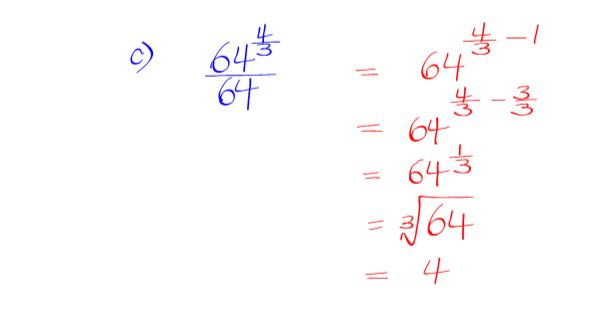 c) 64^(4/3) / 64 = 64^(4/3 - 1)
= 64^(4/3 - 3/3)
= 64^(1/3)
= ∛64
= 4